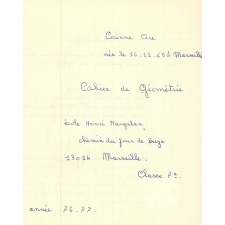 Corinne Cire
née le 16.11.65 à Marseille
Cahier de Géométrie
école Henri Margalan
chemin du four de Buze
13014 Marseille.
Classe 7e.
année 76-77